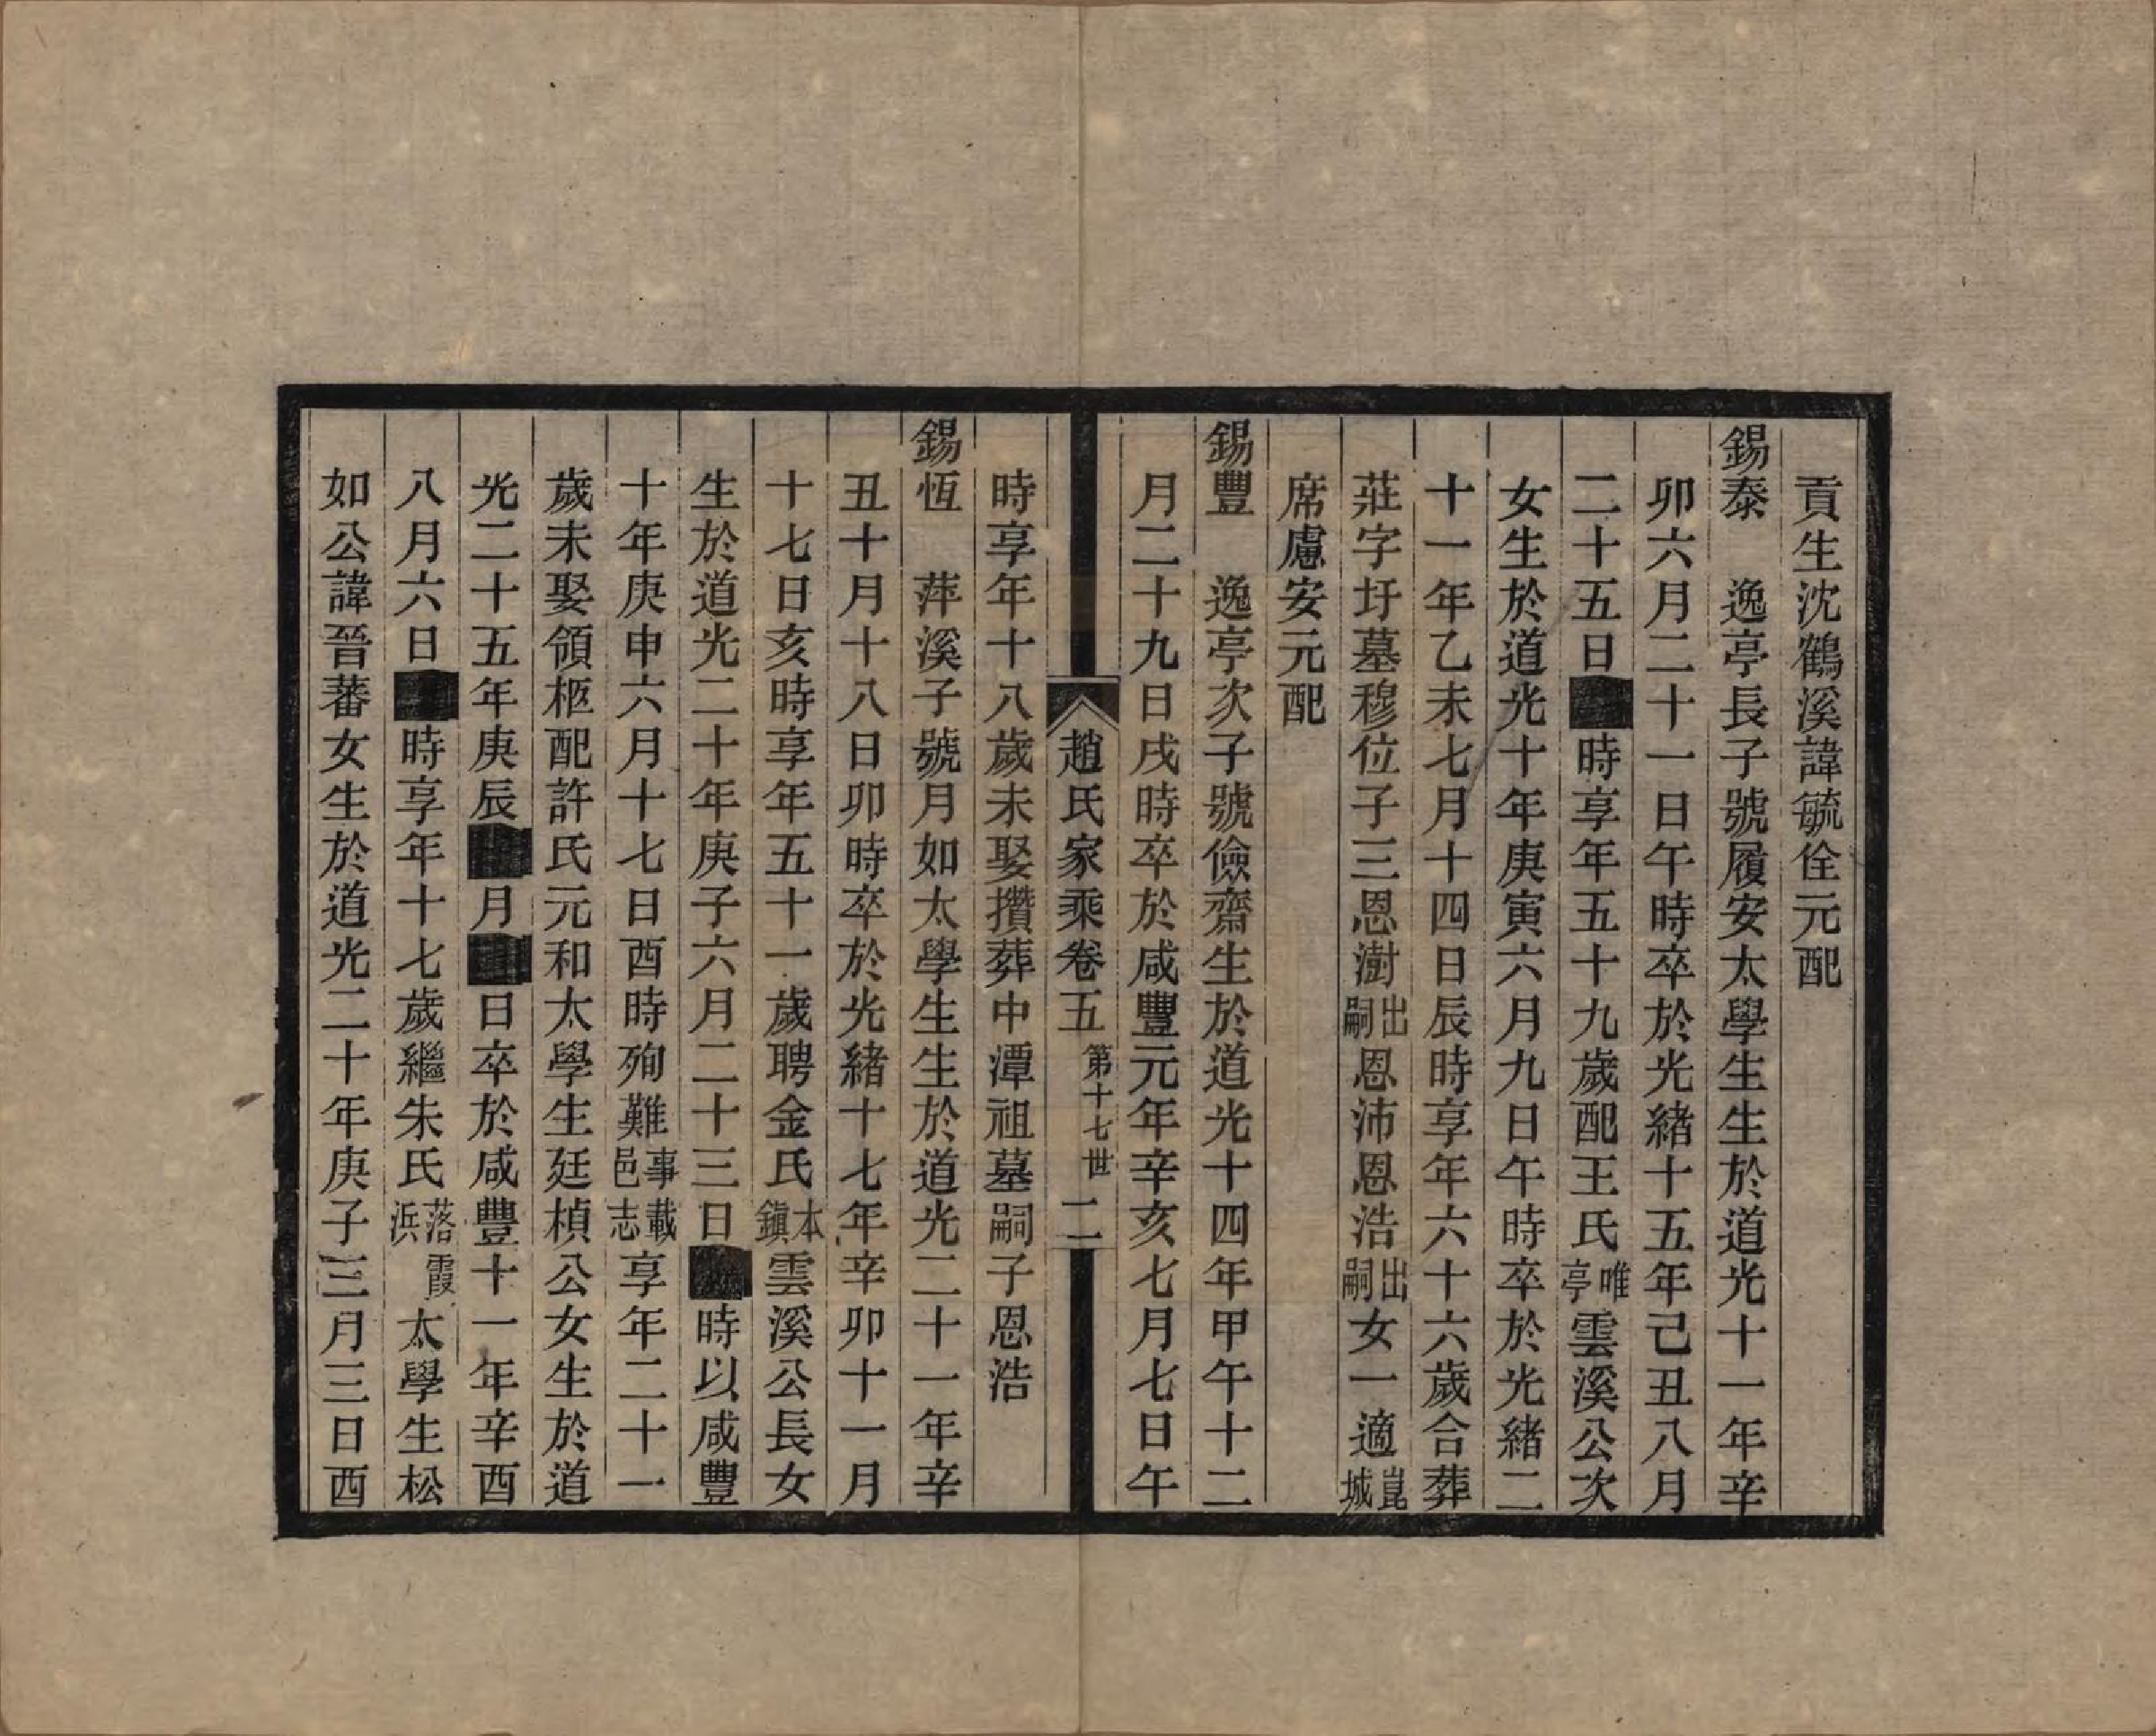 貢生沈鶴溪諱毓佺元配
錫泰　逸亭長子號履安太學生生於道光十一年辛
卯六月二十一日午時卒於光緒十五年己丑八月
二十五日■時享年五十九歲配王氏唯亭雲溪公次
女生於道光十年庚寅六月九日午時卒於光緒二
十一年乙未七月十四日辰時享年六十六歲合葬
莊字圩墓穆位子三恩澍出嗣恩沛恩浩出嗣女一適崑城
席慮安元配
錫豐　逸亭次子號儉齋生於道光十四年甲午十二
月二十九日戌時卒於咸豐元年辛亥七月七日午
趙氏家乘卷五　第十七世　二
時享年十八歲未娶攢葬中潭祖墓嗣子恩浩
錫恆　萍溪子號月如太學生生於道光二十一年辛
丑十月十八日卯時卒於光緒十七年辛卯十一月
十七日亥時享年五十一歲聘金氏本鎮雲溪公長女
生於道光二十年庚子六月二十三日■時以咸豐
十年庚申六月十七日酉時殉難事載邑志享年二十一
歲未娶領柩配許氏元和太學生廷楨公女生於道
光二十五年庚辰■月■日卒於咸豐十一年辛酉
八月六日■時享年十七歲繼朱氏落霞浜太學生松
如公諱晉蕃女生於道光二十年庚子三月三日酉